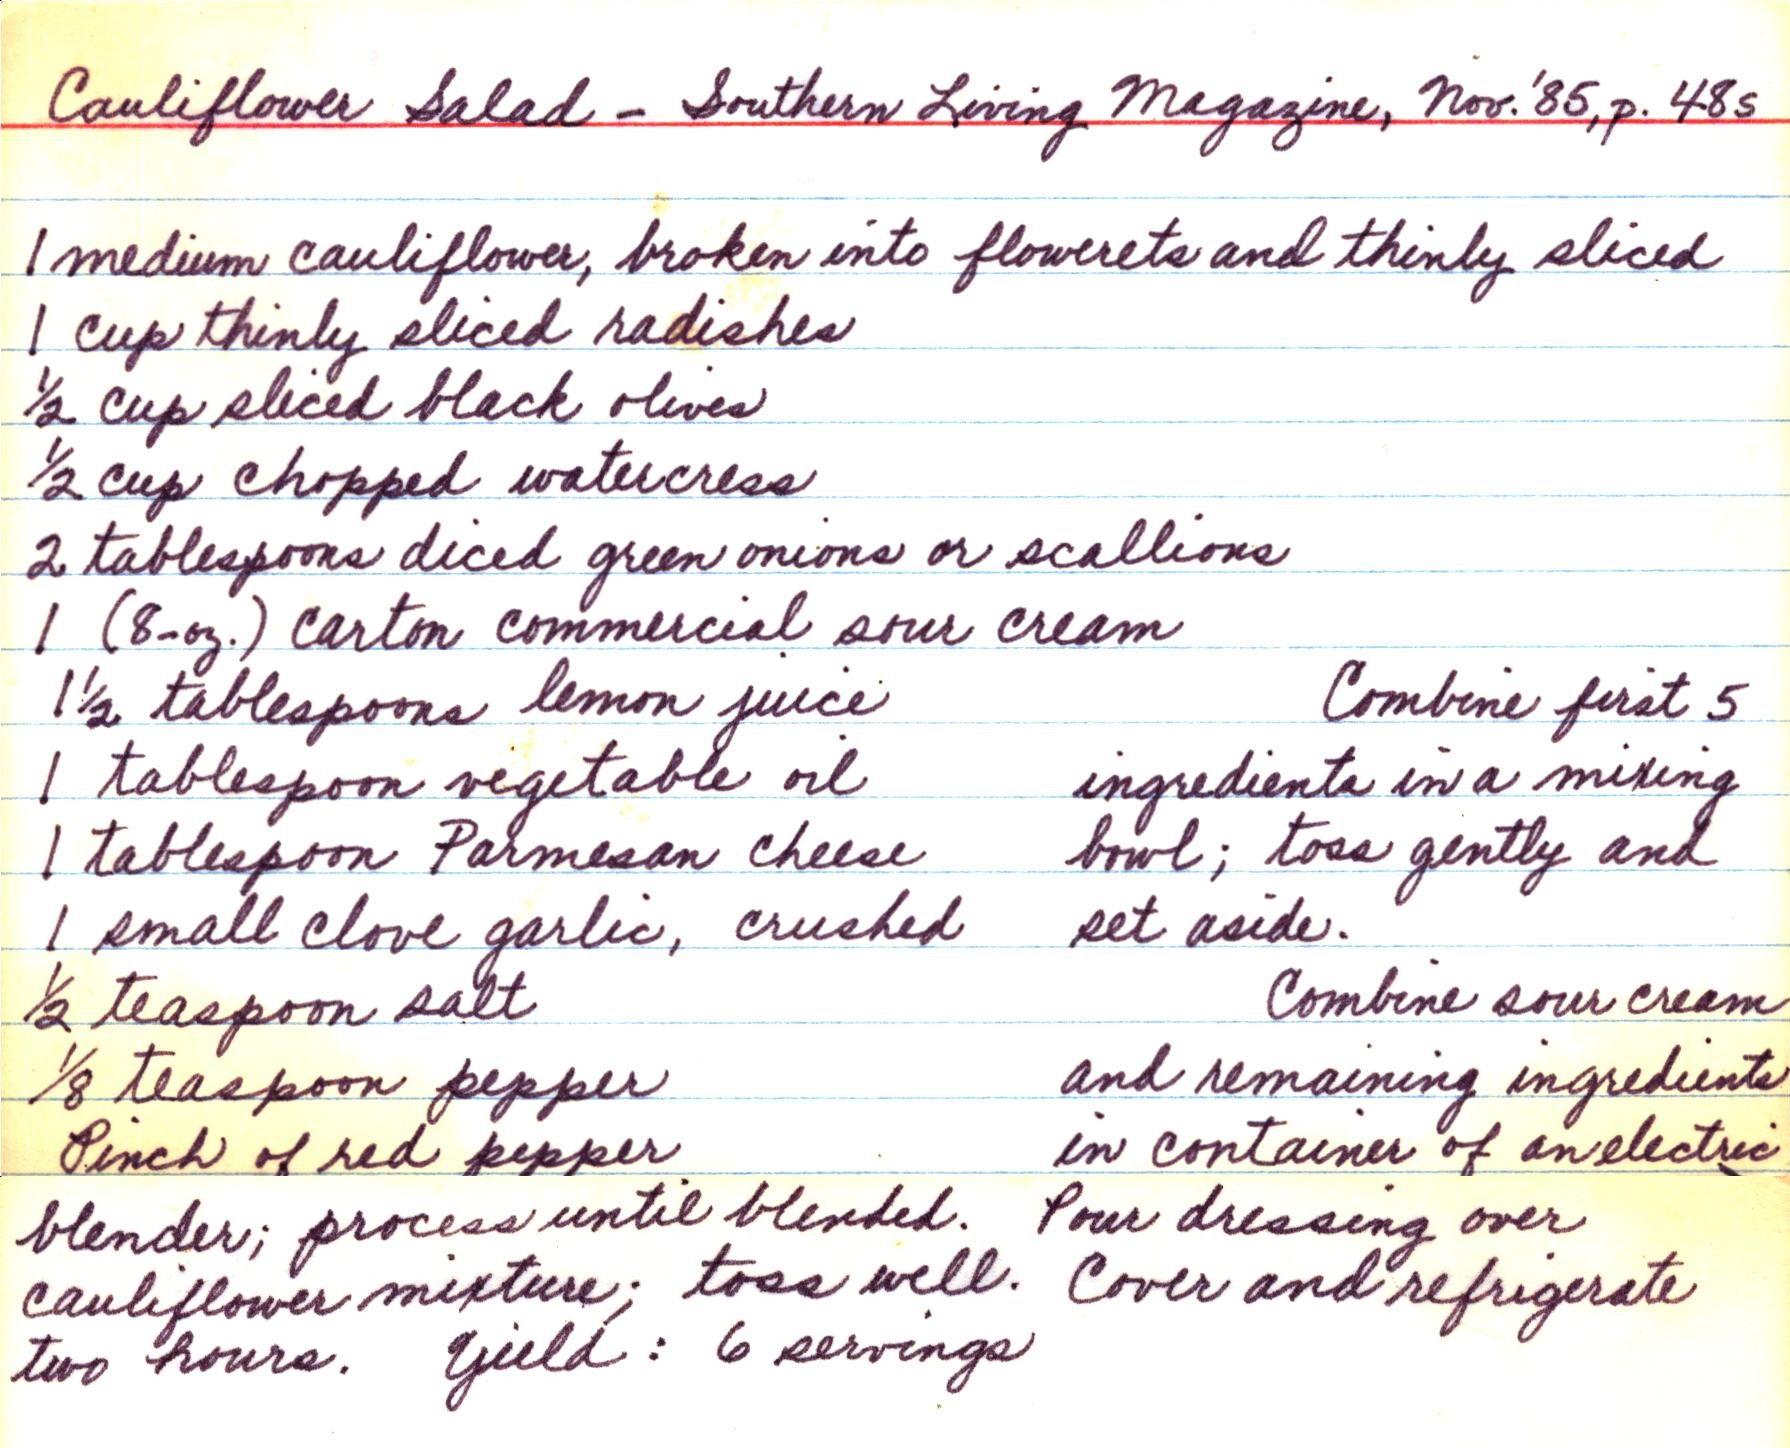 Cauliflower Salad - Southern Living Magazine, Nov. '85, p. 48s
1 medium cauliflower, broken into flowerets and thinly sliced
1 cup thinly sliced radishes
1/2 cup sliced black olives
1/2 cup chopped watercress
2 tablespoons diced green onions or scallions
1 (8-oz.) carton commercial sour cream
1 1/2 tablespoons lemon juice
1 tablespoon vegetable oil
1 tablespoon Parmesan cheese
1 small clove garlic, crushed
1/2 teaspoon salt
1/8 teaspoon pepper
Pinch of red pepper
Combine first 5
ingredients in a mixing
bowl; toss gently and
set aside.
Combine sour cream
and remaining ingredients
in container of an electric
blender; process until blended. Pour dressing over
cauliflower mixture; toss well. Cover and refrigerate
two hours. Yield: 6 servings